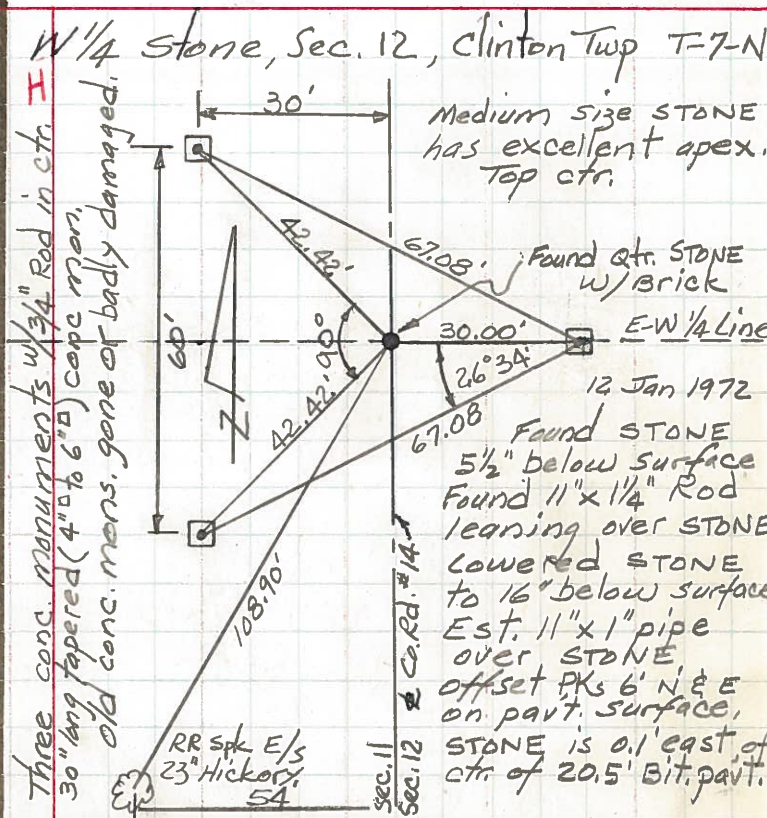 W 1/4 Stone, Sec. 12, Clinton Twp T-7-N
H
Three conc. monuments w/ 3/4" Rod in ctr.
30" long tapered (4"□ to 6"□) conc mon.
old conc. mons. gone or badly damaged.
30'
Medium size STONE
has excellent apex.
Top ctr.
42.42'
67.08'
Found Qtr. STONE
w/ Brick
60'
90°
30.00'
E-W 1/4 Line
26°34'
N
42.42'
67.08
12 Jan 1972
Found STONE
5 1/2" below Surface
Found 11" x 1 1/4" Rod
leaning over STONE
Lowered STONE
to 16" below surface
Est. 11" x 1" pipe
over STONE
offset PKs 6' N & E
on pav't. surface.
STONE is 0.1' east of
ctr of 20.5' Bit. pav't.
108.90'
RR Spk E/s
23" Hickory
54'
Sec. 11
Sec. 12 ℄ Co. Rd. #14